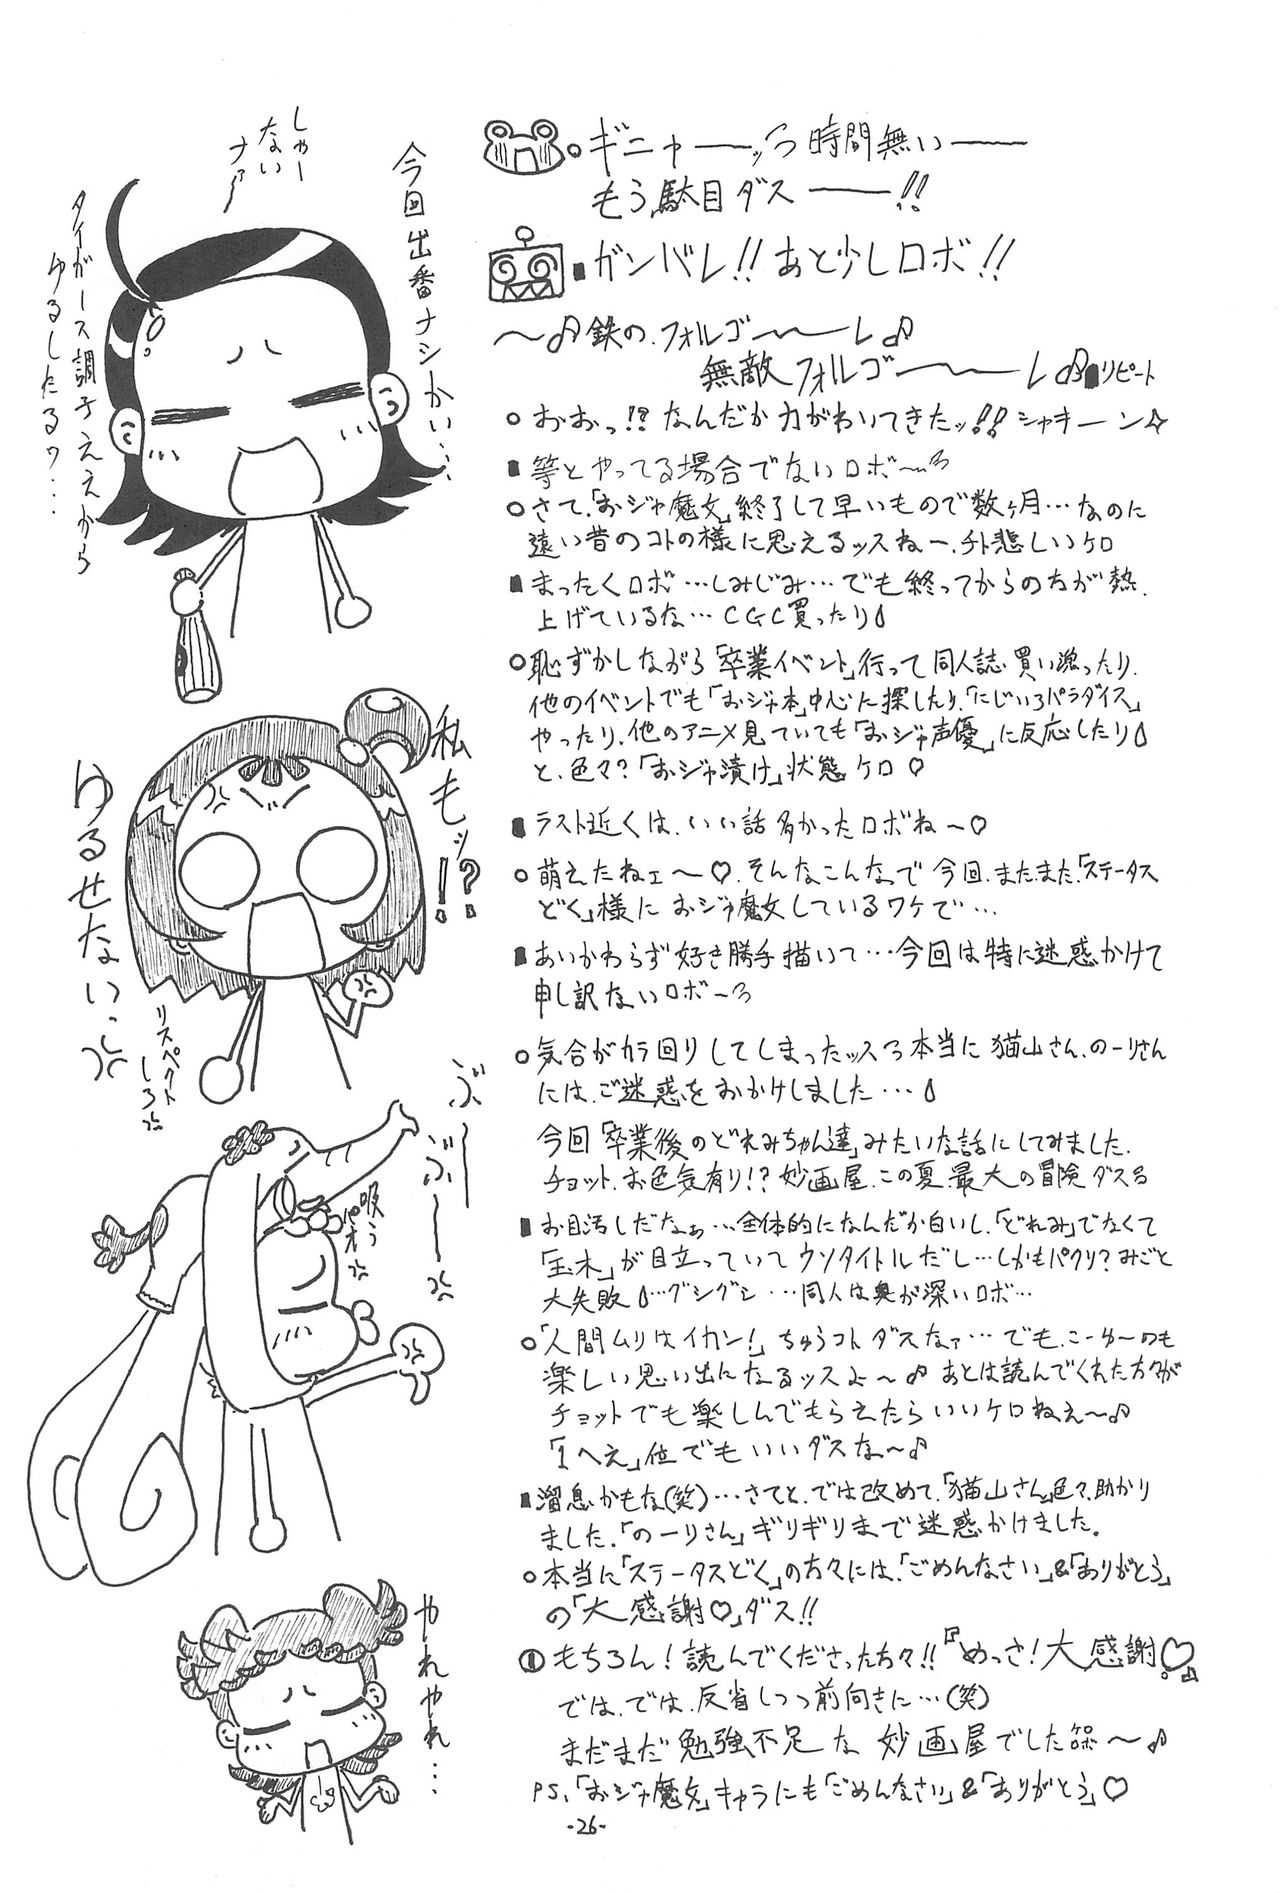 ギニャーーッ 時間無いーー
もう駄目ダスーー!!
ガンバレ!! あと少しロボ!!
〜♪鉄の、フォルゴーーーレ♪
無敵フォルゴーーーレ♪ リピート
おおっ!? なんだか力がわいてきたッ!! シャキーン☆
等とやってる場合でないロボ〜
さて、「おジャ魔女」終了して早いもので数ヶ月…なのに
遠い昔のコトの様に思えるッスねー、チト悲しいケロ
まったくロボ…しみじみ…でも終ってからの方が熱
上げているな…CGC買ったり
恥ずかしながら「卒業イベント」行って同人誌買い漁ったり、
他のイベントでも「おジャ本」中心に探したり、「にじいろパラダイス」
やったり、他のアニメ見ていても「おジャ声優」に反応したり
と、色々?「おジャ漬け」状態ケロ♡
ラスト近くは、いい話多かったロボね〜♡
萌えたねェ〜♡、そんなこんなで今回、またまた「ステータス
どく」様におジャ魔女しているワケで…
あいかわらず好き勝手描いて…今回は特に迷惑かけて
申し訳ないロボ〜
気合がカラ回りしてしまったッス 本当に猫山さん、のーりさん
には、ご迷惑をおかけしました…
今回「卒業後のどれみちゃん達」みたいな話にしてみました、
チョット、お色気有り!? 妙画屋、この夏、最大の冒険ダス
お目汚しだなぁ…全体的になんだか白いし、「どれみ」でなくて
「玉木」が目立っていてウソタイトルだし…しかもパクリ?みごと
大失敗…グシグシ…同人は奥が深いロボ…
「人間ムリはイカン!」ちゅうコトダスなァ…でも、こーゆーのも
楽しい思い出になるッスよ〜♪ あとは読んでくれた方々が
チョットでも楽しんでもらえたらいいケロねぇ〜♪
「1へえ」位でもいいダスな〜♪
溜息かもな(笑)…さてと、では改めて、「猫山さん」色々、助かり
ました、「のーりさん」ギリギリまで迷惑かけました。
本当に「ステータスどく」の方々には、「ごめんなさい」&「ありがとう」
の「大感謝♡」ダス!!
もちろん!読んでくださった方々!!『めっさ!大感謝♡』
では、では、反省しつつ前向きに…(笑)
まだまだ勉強不足な 妙画屋でした 〜♪
PS、「おジャ魔女」キャラにも「ごめんなさい」&「ありがとう」♡
今回出番ナシかい…
しゃー
ない
ナァ〜
タイガース調子ええから
ゆるしたるワ…
私もッ!?
ゆるせない…
リスペクト
しろ
ぶーー
ぶーー
吸う
パオ
やれやれ…
-26-